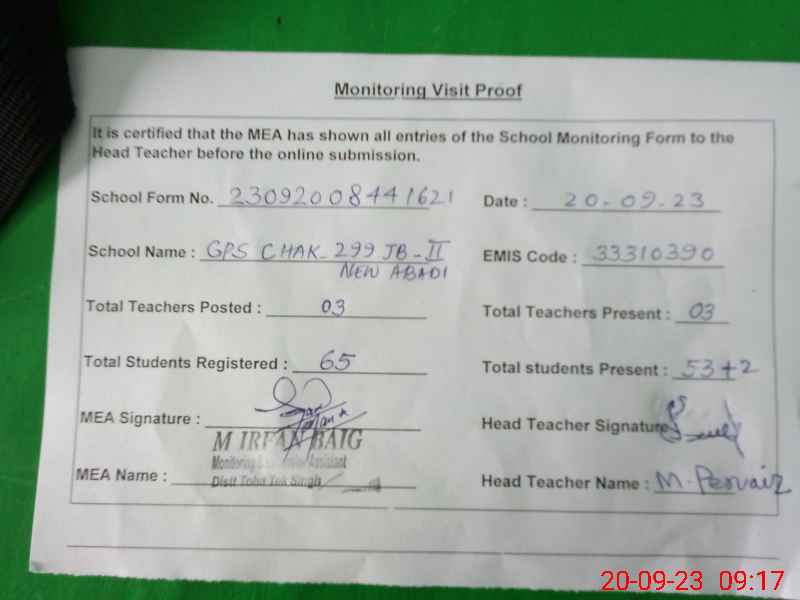 Monitoring Visit Proof
It is certified that the MEA has shown all entries of the School Monitoring Form to the
Head Teacher before the online submission.
School Form No. 23092008441621 Date : 20-09-23
School Name : GPS CHAK-299 JB-II EMIS Code : 33310390
NEW ABADI
Total Teachers Posted : 03 Total Teachers Present : 03
Total Students Registered : 65 Total students Present : 53+2
MEA Signature : Head Teacher Signature
M IRFAN BAIG
Monitoring Assistant
MEA Name : Distt Toba Tek Singh Head Teacher Name : M. Pervaiz
20-09-23 09:17